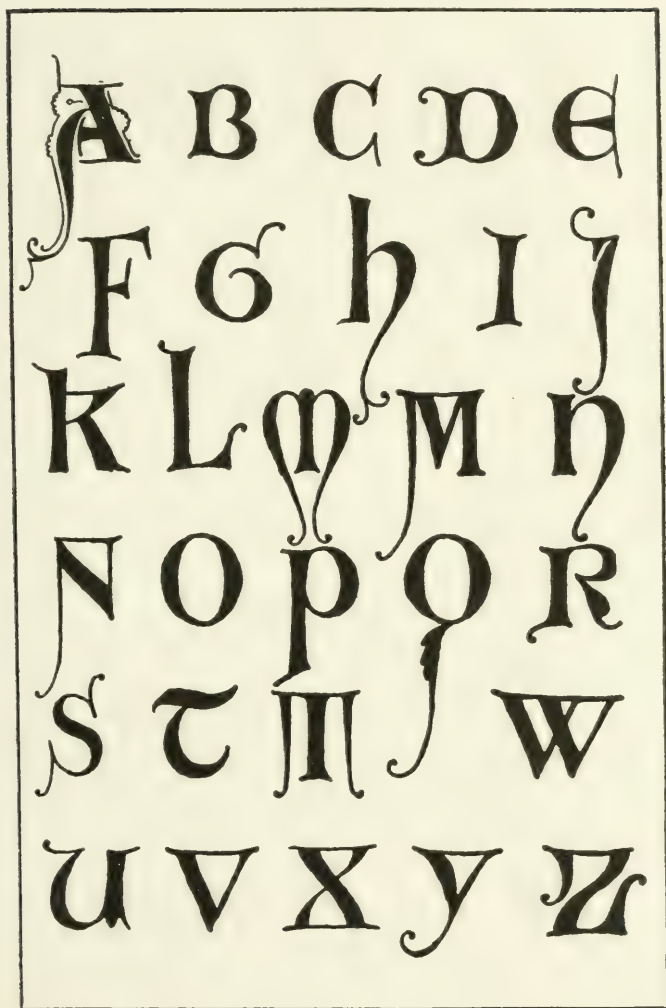 A B C D E
F G H I J
K L M M N
N O P Q R
S T T W
U V X Y Z